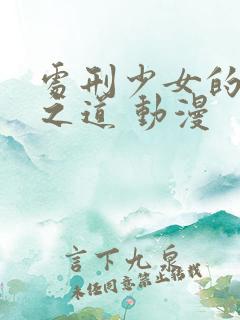 處刑少女的
之道 動漫
言下九泉
未任同意禁止转载